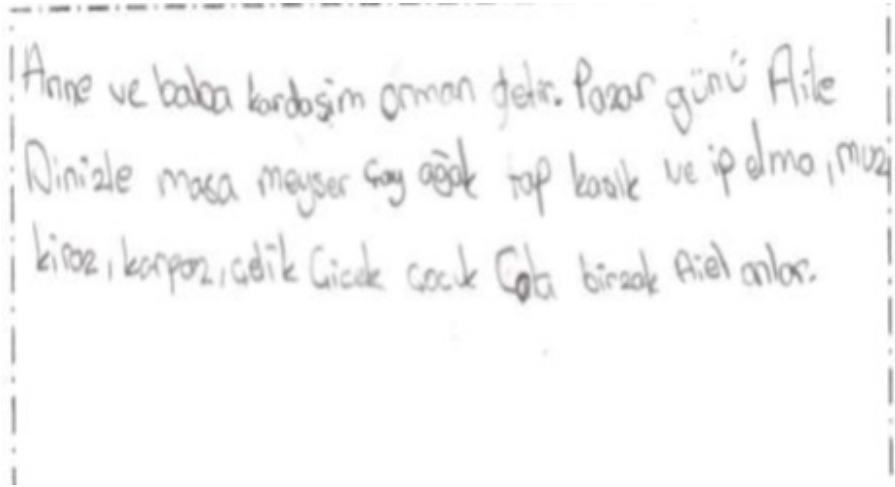 Anne ve baba kardaşim orman getir. Pazar günü Aile
Dinizle masa meyser çay ağak top kasik ve ip elma, muz
kiroz, karpoz, çelik Cicek çocuk Cola birzak Aiel onlar.